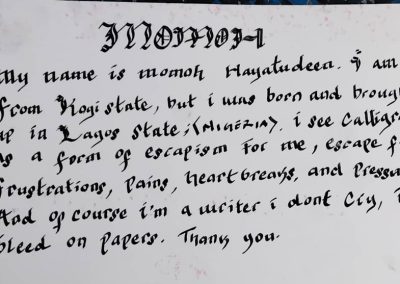 MOMOH
My name is momoh Hayatudeen. I am
from Kogi state, but i was born and broug
up in Lagos state, (NIGERIA). i see Calligra
as a form of escapism for me, escape f
frustrations, Pains, heartbreaks, and Pressu
And of course i'm a writer i dont Cry, i
bleed on papers. Thank you.